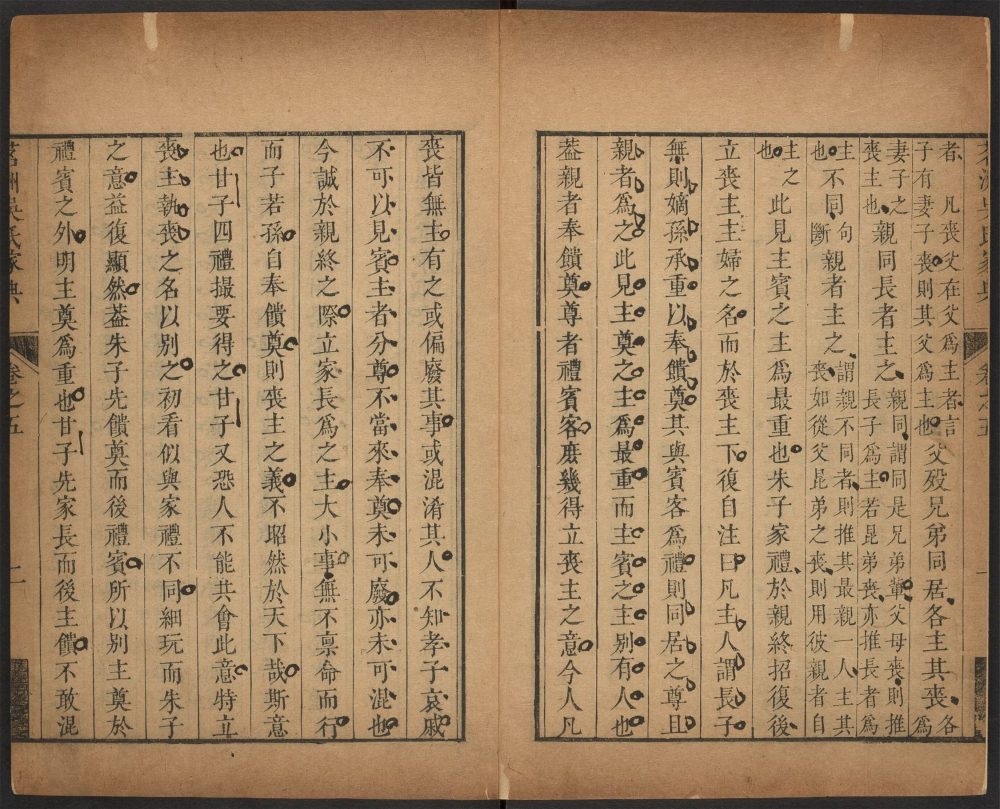 者凡喪父在父爲主者言子有妻子喪則其父爲主也父歿兄弟同居各主其喪各爲
妻子之喪主也親同長者主之親同謂同是兄弟輩父母喪則推長子爲主若昆弟喪亦推長者爲
主也不同句斷親者主之謂親不同者則推其最親一人主其喪如從父昆弟之喪則用彼親者自
主之也此見主賓之主爲最重也朱子家禮於親終招復後
立喪主主婦之名而於喪主下復自注曰凡主人謂長子
無則嫡孫承重以奉饋奠其與賓客爲禮則同居之尊且
親者爲之此見主奠之主爲最重而主賓之主別有人也
葢親者奉饋奠尊者禮賓客庶幾得立喪主之意今人凡
茗洲吳氏家典 卷之五 二
喪皆無主有之或偏廢其事或混淆其人不知孝子哀戚
不可以見賓主者分尊不當來奉奠未可廢亦未可混也
今誠於親終之際立家長爲之主大小事無不稟命而行
而子若孫自奉饋奠則喪主之義不昭然於天下哉斯意
也甘子四禮撮要得之甘子又恐人不能共會此意特立
喪主執喪之名以別之初看似與家禮不同細玩而朱子
之意益復顯然葢朱子先饋奠而後禮賓所以別主奠於
禮賓之外明主奠爲重也甘子先家長而後主饋不敢混